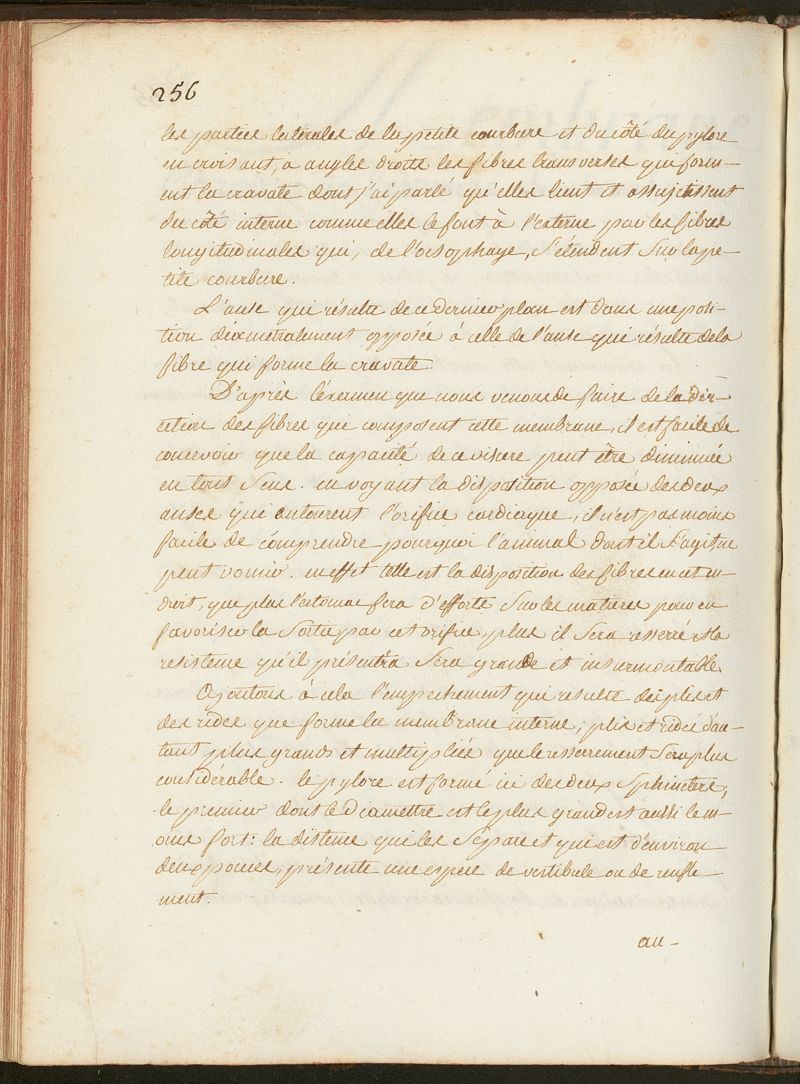 256
les parties laterales de la petite courbure et du côté du pylore
en croisant, a angles droits les fibres transverses qui form-
ent la cravate dont j'ai parlé qu'elles lient et assujetissent
du côté interne comme elles le font à l'externe par les fibres
longitudinales qui, de l'oesophage, s'étendent sur la pe-
tite courbure.
L'anse qui résulte de ce dernier plan est dans une posi-
tion diametralement opposée à celle de l'anse qui résulte de la
fibre qui forme la cravate.
D'après l'éxamen que nous venons de faire de la dir-
ection des fibres qui composent cette membrane, il est facile de
concevoir que la capacité de ce viscere peut être diminuée
en tout sens. en voyant la disposition opposée des deux
anses qui entourent l'orifice cardiaque, il n'est pas moins
facile de comprendre pourquoi l'animal dont il s'agit ne
peut vomir. en effet telle est la disposition des fibres en cet en-
droit, que plus l'estomac fera d'efforts sur les matieres pour en
favoriser la sortie par cet orifice, plus il sera resserré et la
resistence qu'il présentera sera grande et insurmontable.
Ajoutons à cela l'empechement qui resulte des plis et
des rides que forme la membrane interne, plis et rides d'au-
tant plus grands et multipliés que le resserrement sera plus
considérable. le pylore est formé ici des deux sphincters,
le premier dont le diamettre est le plus grand est aussi le m-
oins fort: la distence qui les sépare et qui est d'environ
deux pouces, présente une espece de vestibule ou de renfle-
ment.
au-